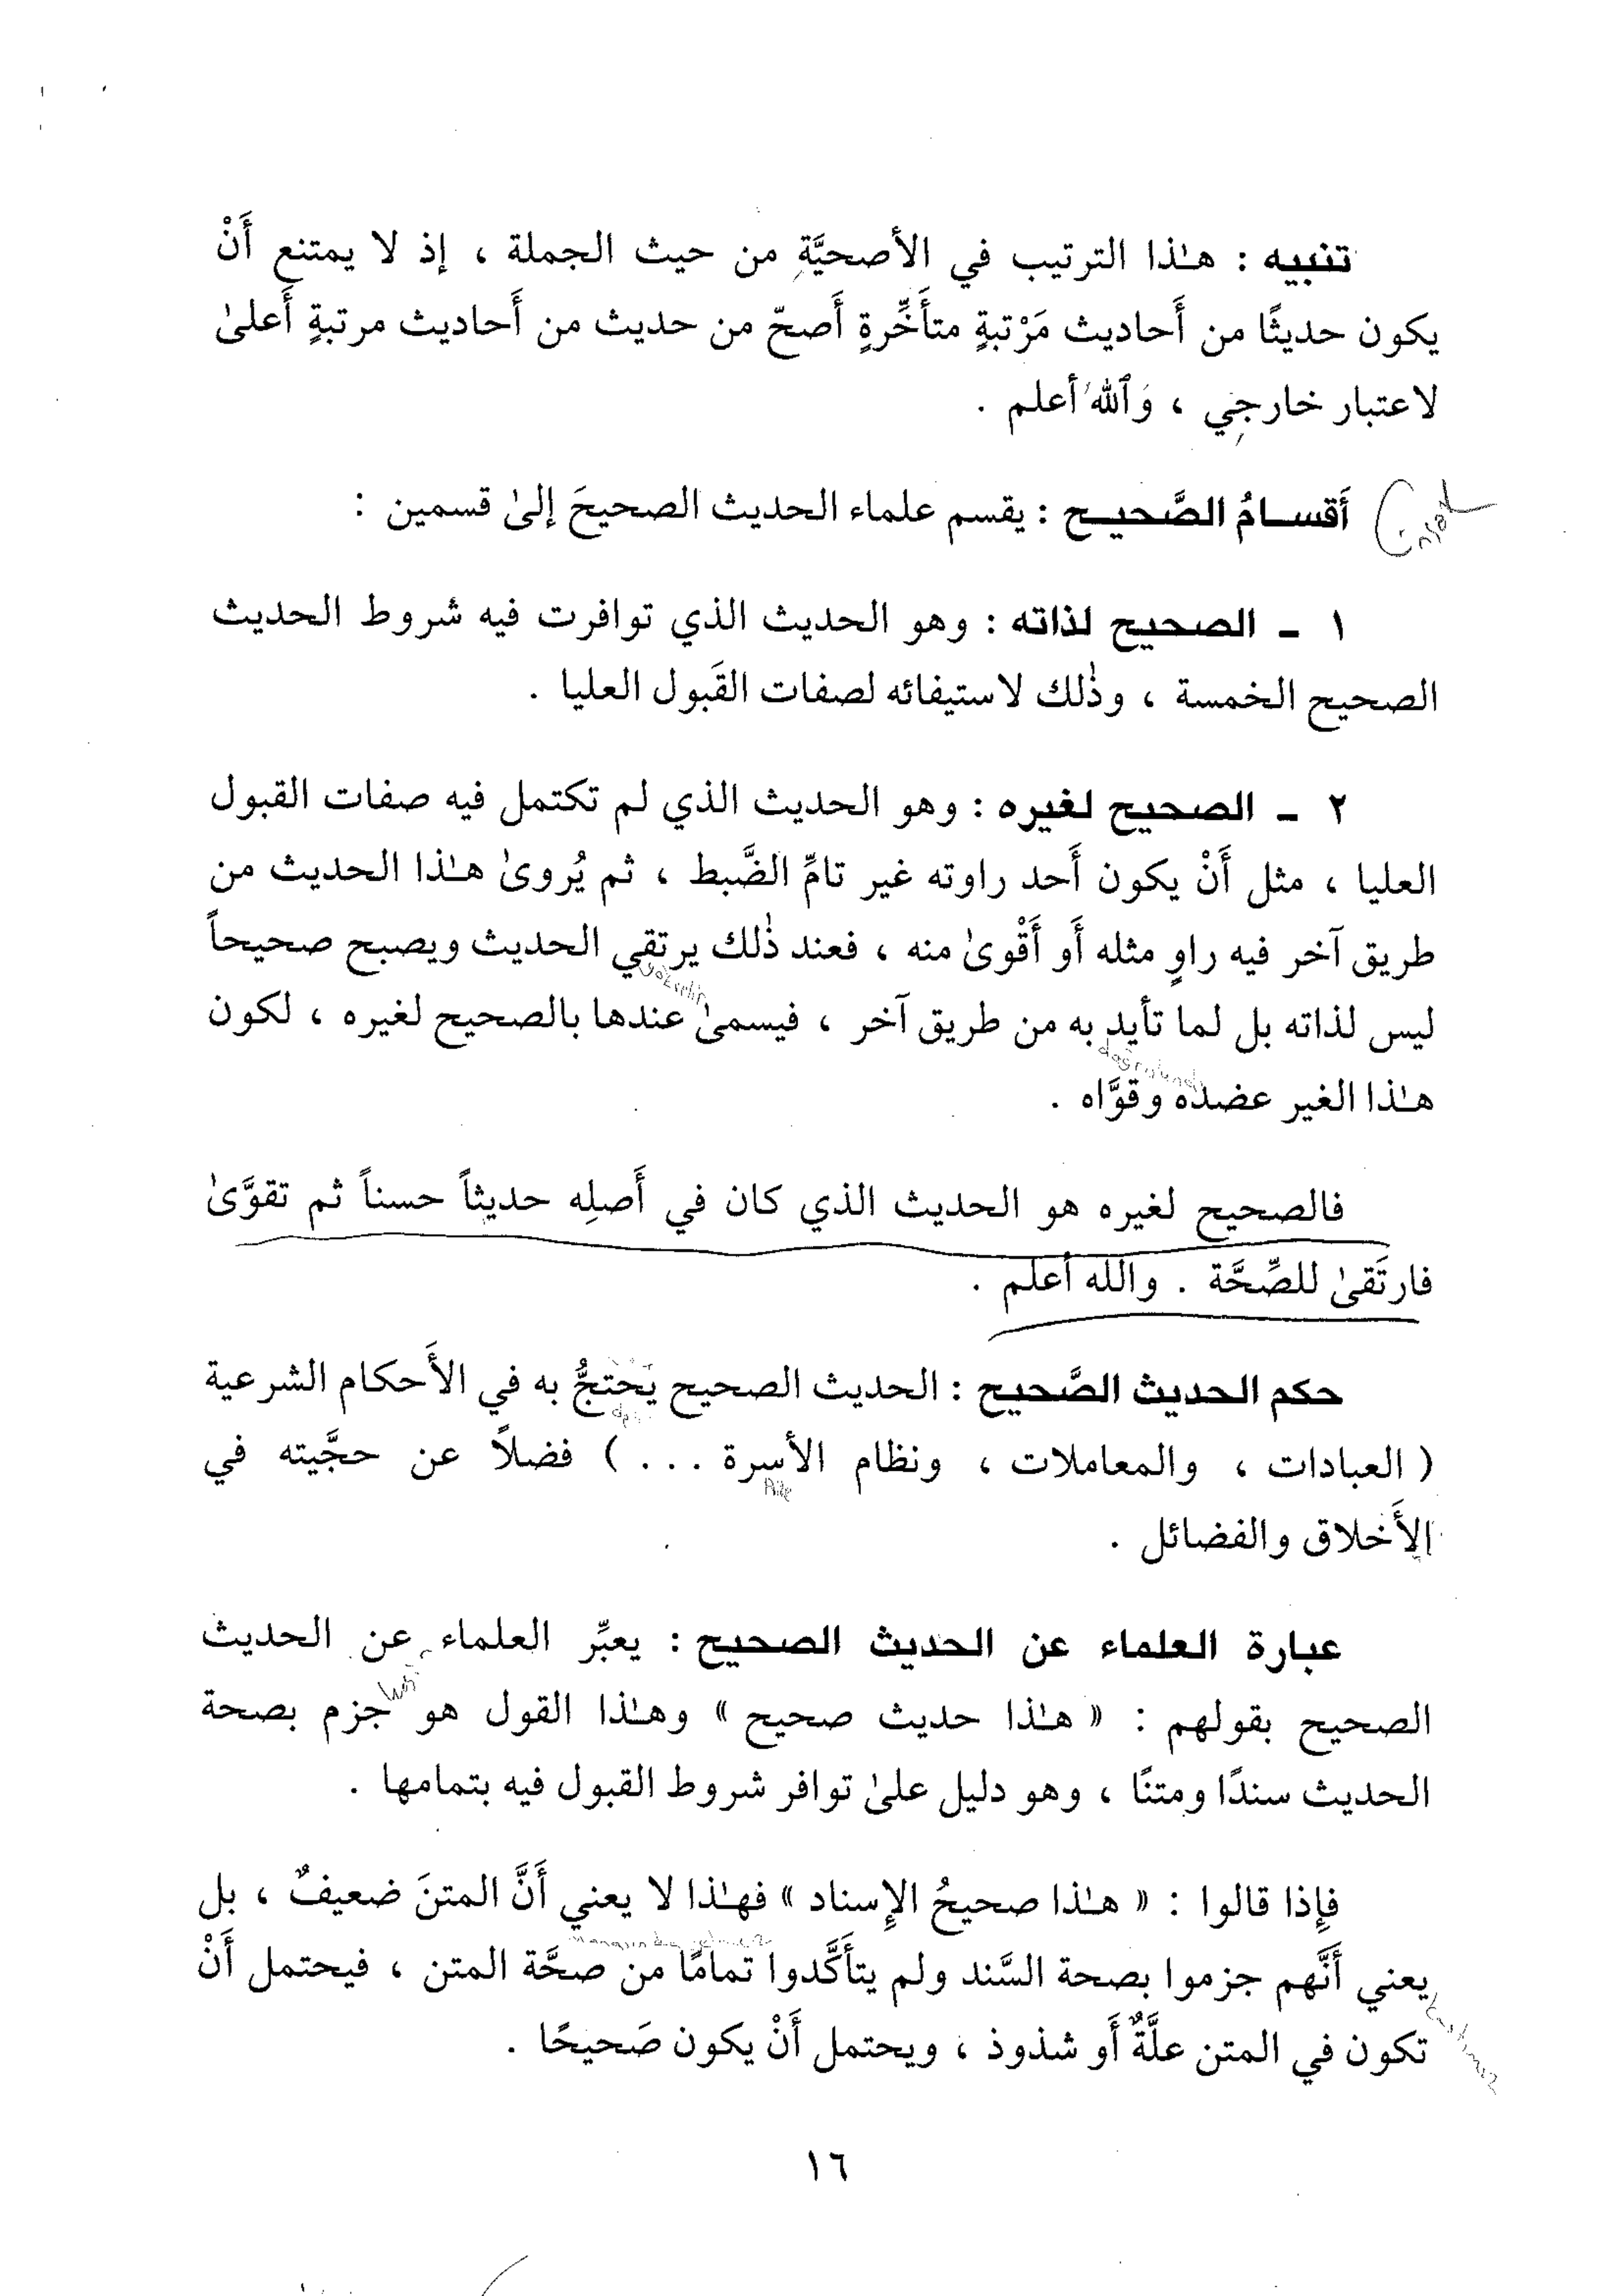 تنبيه : هـٰذا الترتيب في الأصحيَّةِ من حيث الجملة ، إذ لا يمتنع أَنْ
يكون حديثًا من أَحاديث مَرْتبةٍ متأَخِّرةٍ أَصحّ من حديث من أَحاديث مرتبةٍ أَعلىٰ
لاعتبار خارجي ، وَٱللهُ أعلم .
أَقســامُ الصَّحيــح : يقسم علماء الحديث الصحيحَ إلىٰ قسمين :
١ ـ الصحيح لذاته : وهو الحديث الذي توافرت فيه شروط الحديث
الصحيح الخمسة ، وذٰلك لاستيفائه لصفات القَبول العليا .
٢ ـ الصحيح لغيره : وهو الحديث الذي لم تكتمل فيه صفات القبول
العليا ، مثل أَنْ يكون أَحد راوته غير تامِّ الضَّبط ، ثم يُروىٰ هـٰذا الحديث من
طريق آخر فيه راوٍ مثله أَو أَقْوىٰ منه ، فعند ذٰلك يرتقي الحديث ويصبح صحيحاً
ليس لذاته بل لما تأيد به من طريق آخر ، فيسمىٰ عندها بالصحيح لغيره ، لكون
هـٰذا الغير عضده وقوَّاه .
فالصحيح لغيره هو الحديث الذي كان في أَصلِه حديثاً حسناً ثم تقوَّىٰ
فارتَقىٰ للصِّحَّة . والله أعلم .
حكم الحديث الصَّحيح : الحديث الصحيح يَحْتجُّ به في الأَحكام الشرعية
( العبادات ، والمعاملات ، ونظام الأسرة . . . ) فضلاً عن حجَّيته في
Aile
الأَخلاق والفضائل .
عبارة العلماء عن الحديث الصحيح : يعبِّر العلماء عن الحديث
الصحيح بقولهم : « هـٰذا حديث صحيح » وهـٰذا القول هو جزم بصحة
الحديث سندًا ومتنًا ، وهو دليل علىٰ توافر شروط القبول فيه بتمامها .
فإِذا قالوا : « هـٰذا صحيحُ الإِسناد » فهـٰذا لا يعني أَنَّ المتنَ ضعيفٌ ، بل
يعني أَنَّهم جزموا بصحة السَّند ولم يتأَكَّدوا تمامًا من صحَّة المتن ، فيحتمل أَنْ
تكون في المتن علَّةٌ أَو شذوذ ، ويحتمل أَنْ يكون صَحيحًا .
١٦